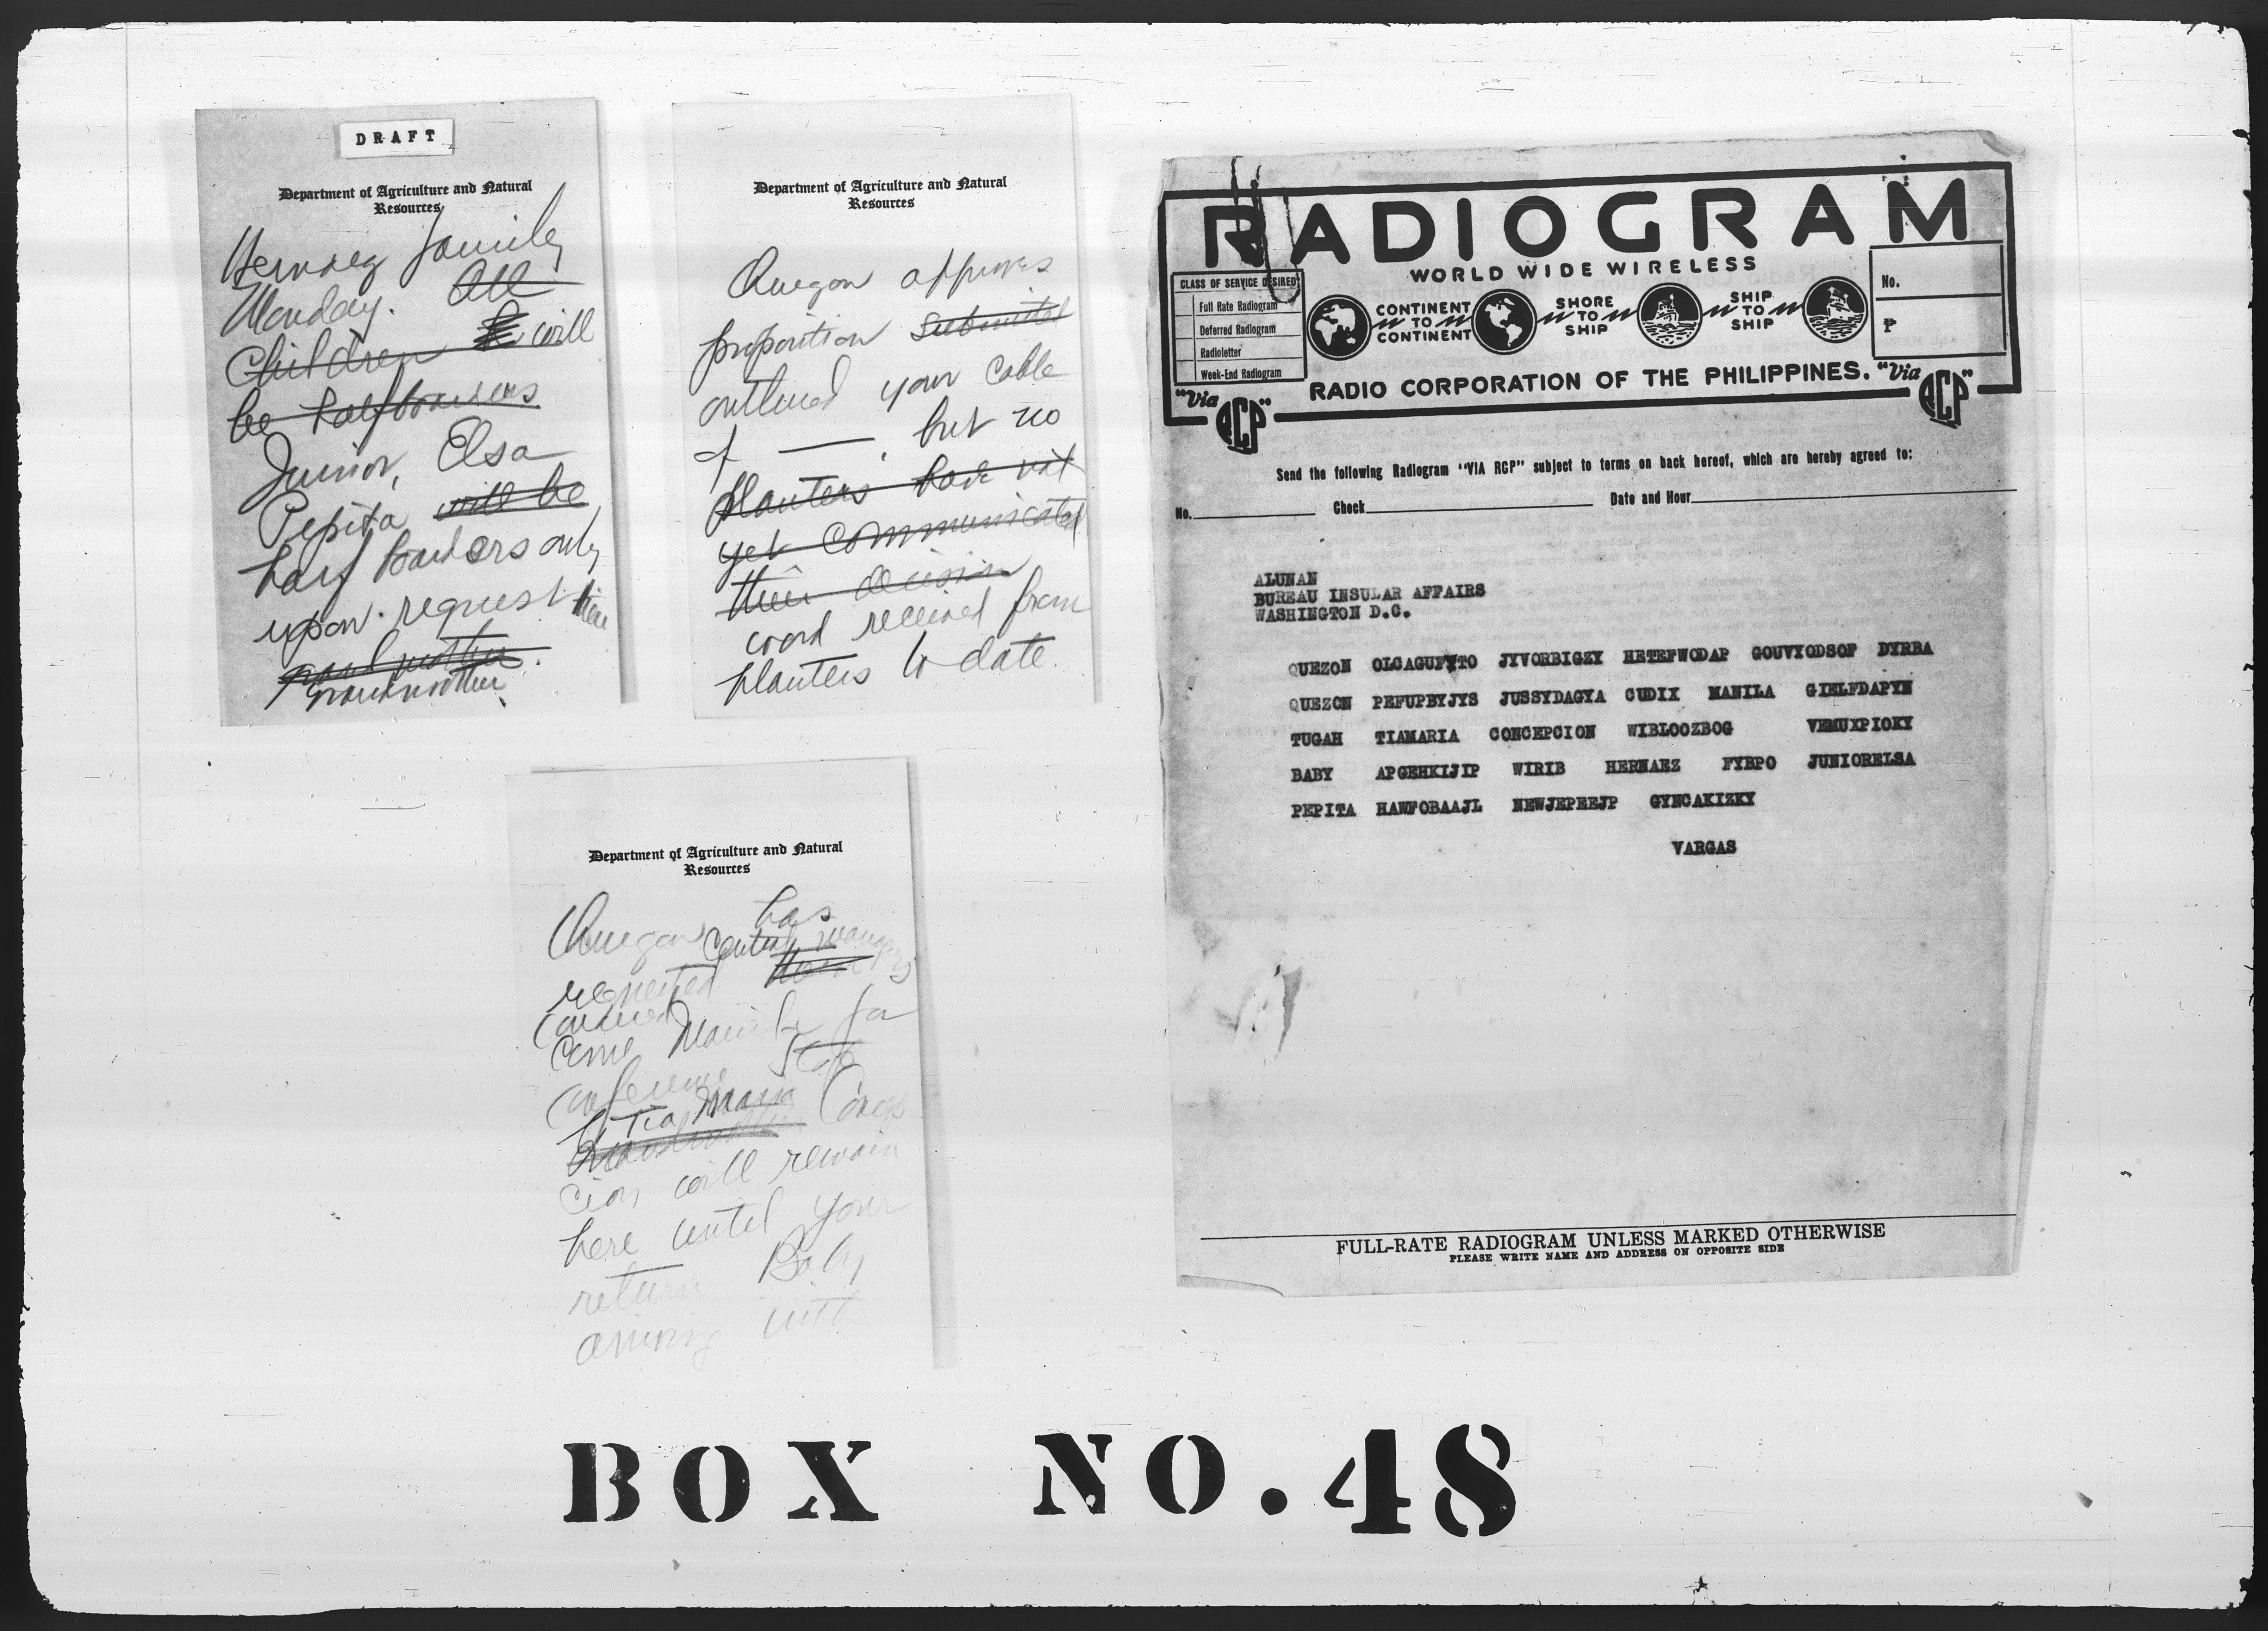 DRAFT
Department of Agriculture and Natural
Resources
Hernaez family
Monday. All
Children will
be half boarders
Junior, Elsa
Pepita will be
half boarders only
upon request
grandmother.
grandmother.
Department of Agriculture and Natural
Resources
Quezon approves
proposition submitted
outlined your cable
of ——, but no
planters have not
yet communicated
their decision
word received from
planters to date.
Department of Agriculture and Natural
Resources
Quezon has
central managers
requested
come Manila for
conference
Tia Maria Concep
cion will remain
here until your
return Baby
arriving with
RADIOGRAM
WORLD WIDE WIRELESS
CLASS OF SERVICE DESIRED
Full Rate Radiogram
Deferred Radiogram
Radioletter
Week-End Radiogram
CONTINENT TO CONTINENT
SHORE TO SHIP
SHIP TO SHIP
No.
₱
RADIO CORPORATION OF THE PHILIPPINES.
"Via RCP"
"Via RCP"
Send the following Radiogram "VIA RCP" subject to terms on back hereof, which are hereby agreed to:
No. Check Date and Hour
ALUNAN
BUREAU INSULAR AFFAIRS
WASHINGTON D.C.
QUEZON OLCAGUFYTO JYVORBIGZY HETEFWODAP GOUVYODSOF DYRBA
QUEZON PEFUPBYJYS JUSSYDAGYA CUDIX MANILA GIELFDAPYN
TUGAH TIAMARIA CONCEPCION WIBLOOZBOG VEMUXPIOKY
BABY APGEHKIJIP WIRIB HERNAEZ FYBPO JUNIORELSA
PEPITA HAWFOBAAJL NEWJEPEEJP GYNCAKIZKY
VARGAS
FULL-RATE RADIOGRAM UNLESS MARKED OTHERWISE
PLEASE WRITE NAME AND ADDRESS ON OPPOSITE SIDE
BOX NO. 48